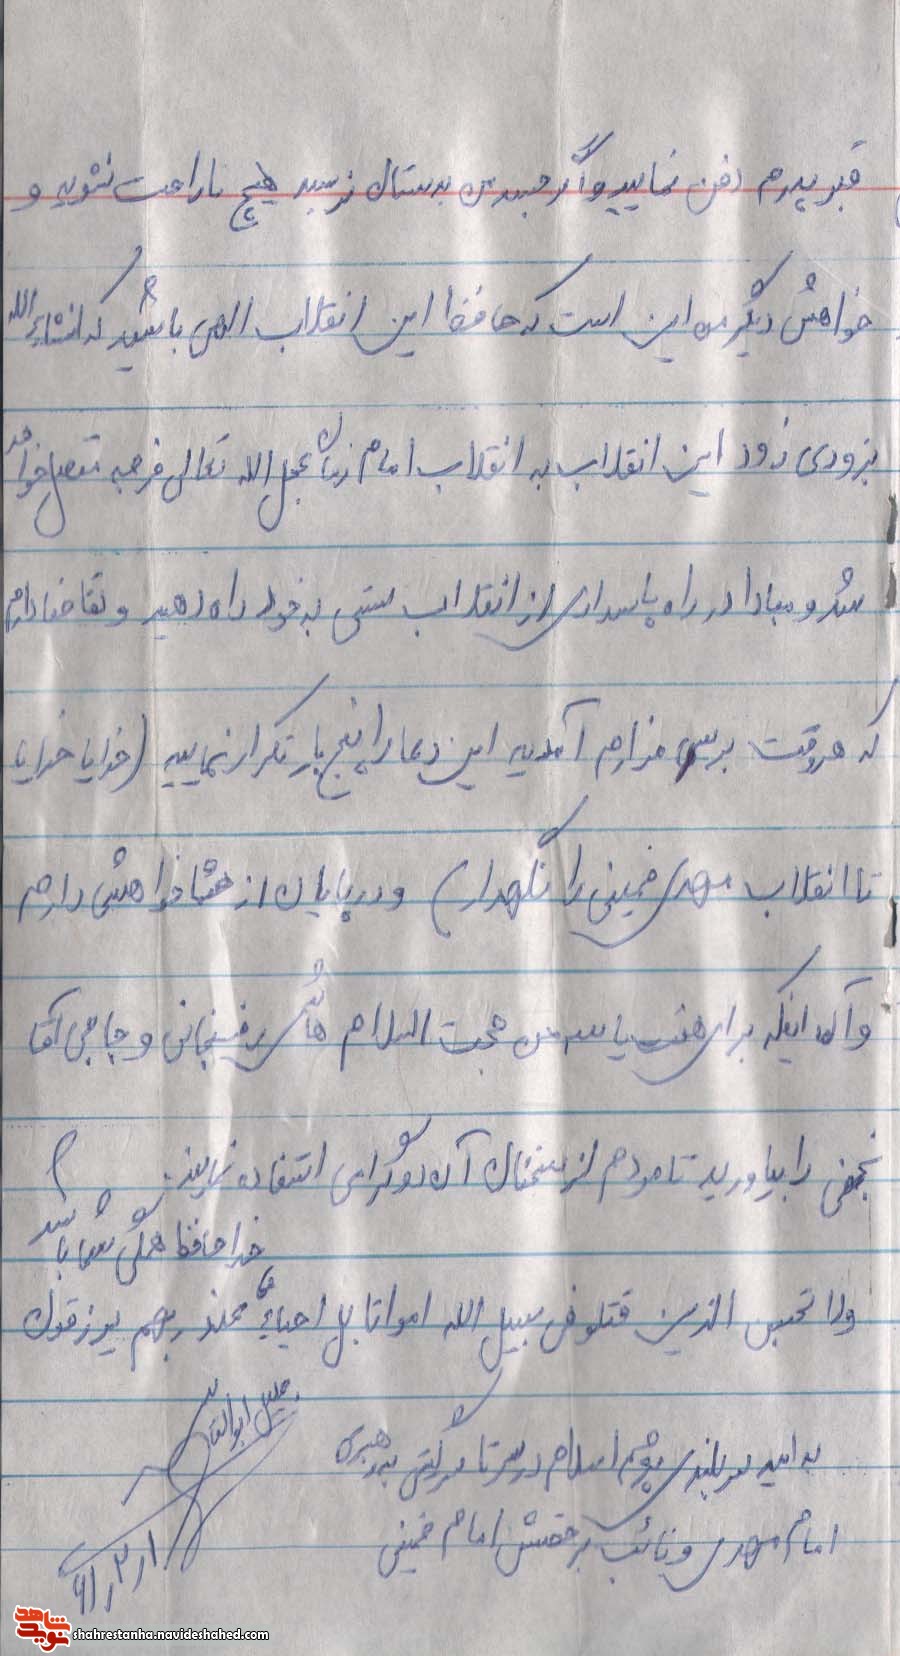 قبر پدرم دفن نمایید و اگر جسدم بدستتان نرسید هیچ ناراحت نشوید و
خواهش دیگر من این است که حافظ این انقلاب الهی باشید که انشاءالله
بزودی زود این انقلاب به انقلاب امام زمان عجل الله تعالی فرجه متصل خواهد
شد و مبادا در راه پاسداری از انقلاب سستی به خود راه دهید و تقاضا دارم
که هر وقت بر سر مزارم آمدید این دعا را پنج بار تکرار نمایید (خدایا خدایا
تا انقلاب مهدی خمینی را نگهدار) و در پایان از شما خواهش دارم
و آن اینکه برای هفت یا سه من حجت السلام هاشمی رفسنجانی و حاجی آقا
نجفی را بیاورید تا مردم از سخنان آن دو گرامی استفاده نمایند.
خدا حافظ همگی شما باشد
ولا تحسبن الذین قتلو فی سبیل الله امواتا بل احیاءٌ عند ربهم یرزقون
به امید سربلندی پرچم اسلام در سرتاسر گیتی به رهبری
امام مهدی و نائب برحقش امام خمینی
ابوالقاسم
۶۱٫۳٫۱
نوید شاهد
shahrestanha.navideshahed.com